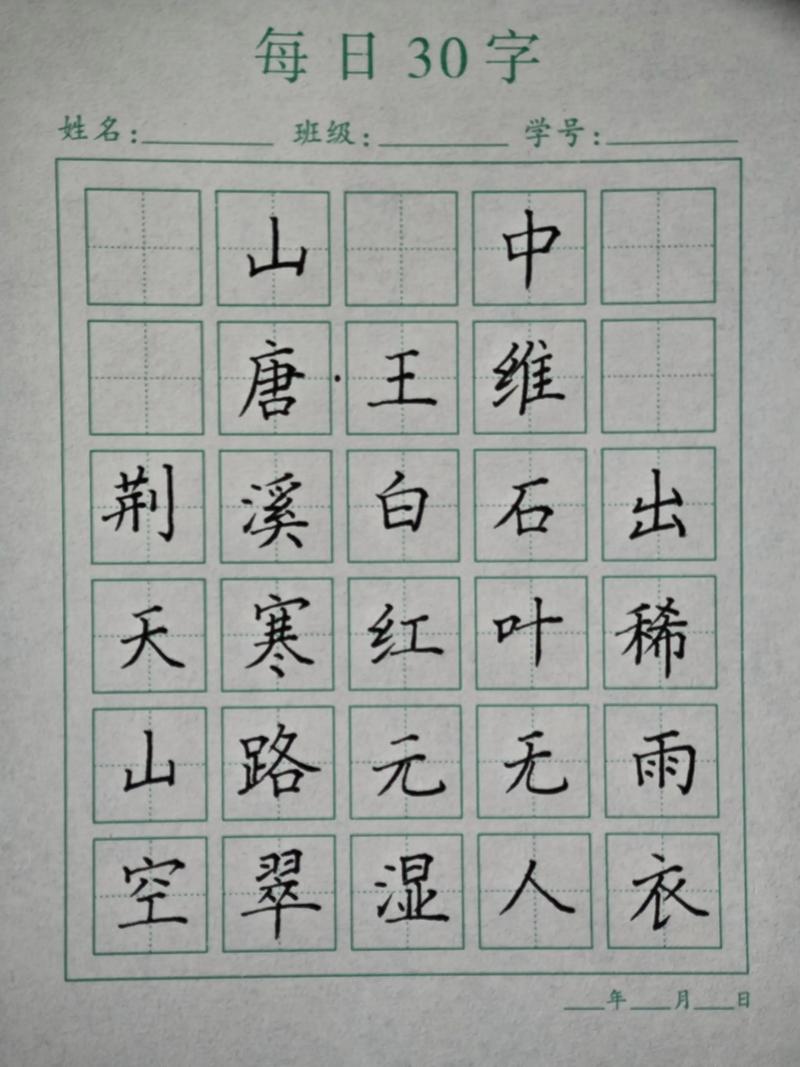 每日30字
姓名： 班级： 学号：
山中
唐·王维
荆溪白石出
天寒红叶稀
山路元无雨
空翠湿人衣
年 月 日